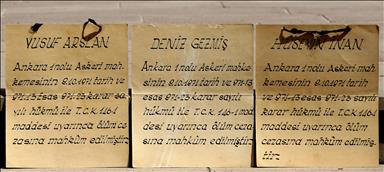 YUSUF ARSLAN
Ankara 1 nolu Askeri mah-
kemesinin 9.10.1971 tarih ve
971-13 esas 971-23 karar sa-
yılı hükmü ile T.C.K 146-1
maddesi uyarınca ölüm ce-
zasına mahküm edilmiştir.
DENİZ GEZMİŞ
Ankara 1 nolu Askeri mahke-
sinin 9.10.1971 tarih ve 971-13
esas 971-23 karar sayılı
hükmü ile T.C.K 146-1 mad-
desi uyarınca ölüm ceza-
sına mahküm edilmiştir.
HÜSEYİN İNAN
Ankara 1 nolu Askeri mah-
kemesinin 9.10.1971 tarih
ve 971-13 esas 971-23 sayılı
karar hükmü ile T.C.K 146-1
maddesi uyarınca ölüm
cezasına mahküm edilmiş-
tir.